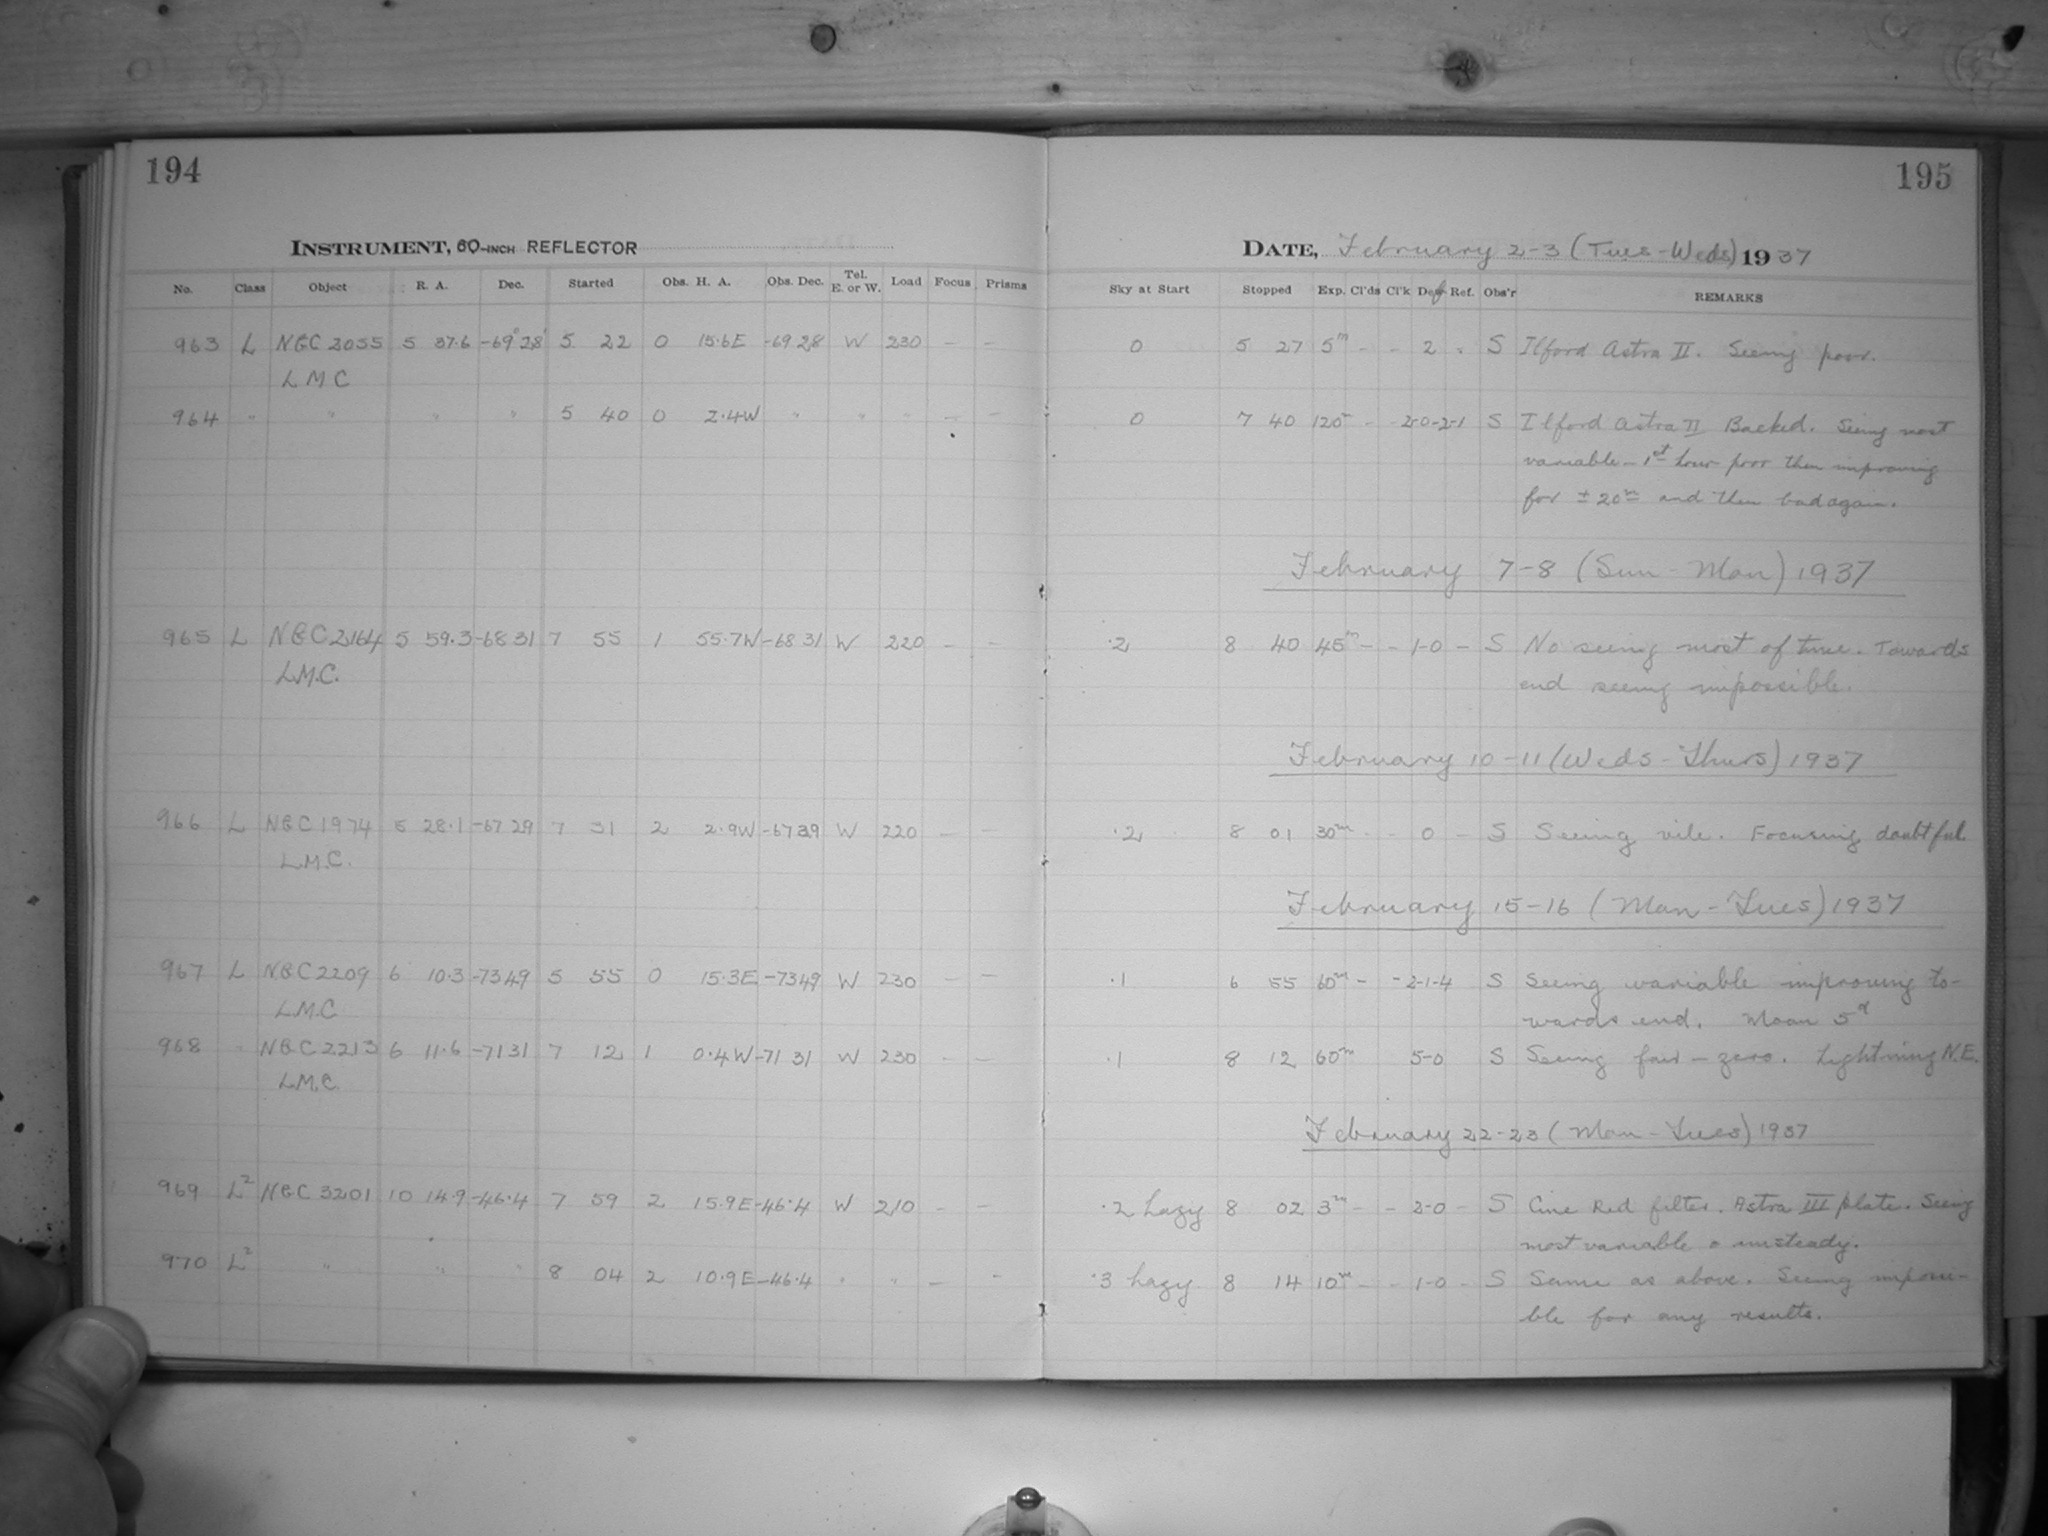 194
195
INSTRUMENT, 60-INCH REFLECTOR
DATE, February 2-3 (Tues-Weds) 1937
No. Class Object R. A. Dec. Started Obs. H. A. Obs. Dec. Tel. E. or W. Load Focus Prisms Sky at Start Stopped Exp. Cl'ds Cl'k Def Ref. Obs'r REMARKS
963 L NGC 2055 5 37.6 -69°28' 5 22 0 15.6E -69 28 W 230 - - 0 5 27 5m - - 2 - S Ilford Astra II. Seeing poor.
L M C
964 " " " " 5 40 0 2.4W " " " - - 0 7 40 120m - - 2-0-2-1 S Ilford Astra II Backed. Seeing most
variable - 1st hour poor then improving
for ± 20m and then bad again.
February 7-8 (Sun-Mon) 1937
965 L NGC 2164 5 59.3 -68 31 7 55 1 55.7W -68 31 W 220 - - .2 8 40 45m - - 1-0 - S No seeing most of time. Towards
L.M.C. end seeing impossible.
February 10-11 (Weds-Thurs) 1937
966 L NGC 1974 5 28.1 -67 29 7 31 2 2.9W -67 29 W 220 - - .2 8 01 30m - - 0 - S Seeing vile. Focusing doubtful
L.M.C.
February 15-16 (Mon-Tues) 1937
967 L NGC 2209 6 10.3 -73 49 5 55 0 15.3E -73 49 W 230 - - .1 6 55 60m - - 2-1-4 S Seeing variable improving to-
L.M.C wards end. Moon 5d
968 " NGC 2213 6 11.6 -71 31 7 12 1 0.4W -71 31 W 230 - - .1 8 12 60m 5-0 S Seeing fair - zero. Lightning N.E.
L.M.C.
February 22-23 (Mon-Tues) 1937
969 L2 NGC 3201 10 14.9 -46.4 7 59 2 15.9E -46.4 W 210 - - .2 hazy 8 02 3m - - 2-0 - S Cine Red filter. Astra III plate. Seeing
most variable & unsteady.
970 L2 " " " 8 04 2 10.9E -46.4 " " - - .3 hazy 8 14 10m - - 1-0 - S Same as above. Seeing impossi-
ble for any results.